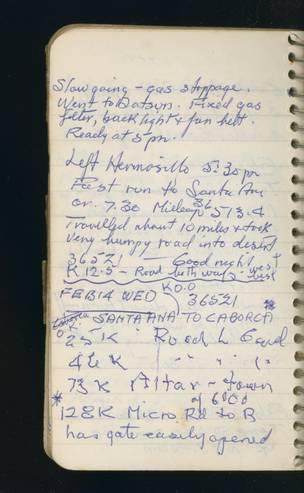 Slow going - gas stoppage.
Went to Datsun. Fixed gas
filter, back light & fan belt.
Ready at 5 pm.
Left Hermosillo 5:30 pm
Fast run to Santa Ana
or. 7.30 Mileage 36513.4
Travelled about 10 miles & took
very bumpy road into desert
36521 — Good night
K 12.5 - Road both ways - west
FEB 14 WED K 0.0 36521
SANTA ANA TO CABORCA
O.K.
25 K Road L Good
46 K " " "
73 K Altar - town
of 6000
* 128 K Micro Rd to R
has gate easily opened